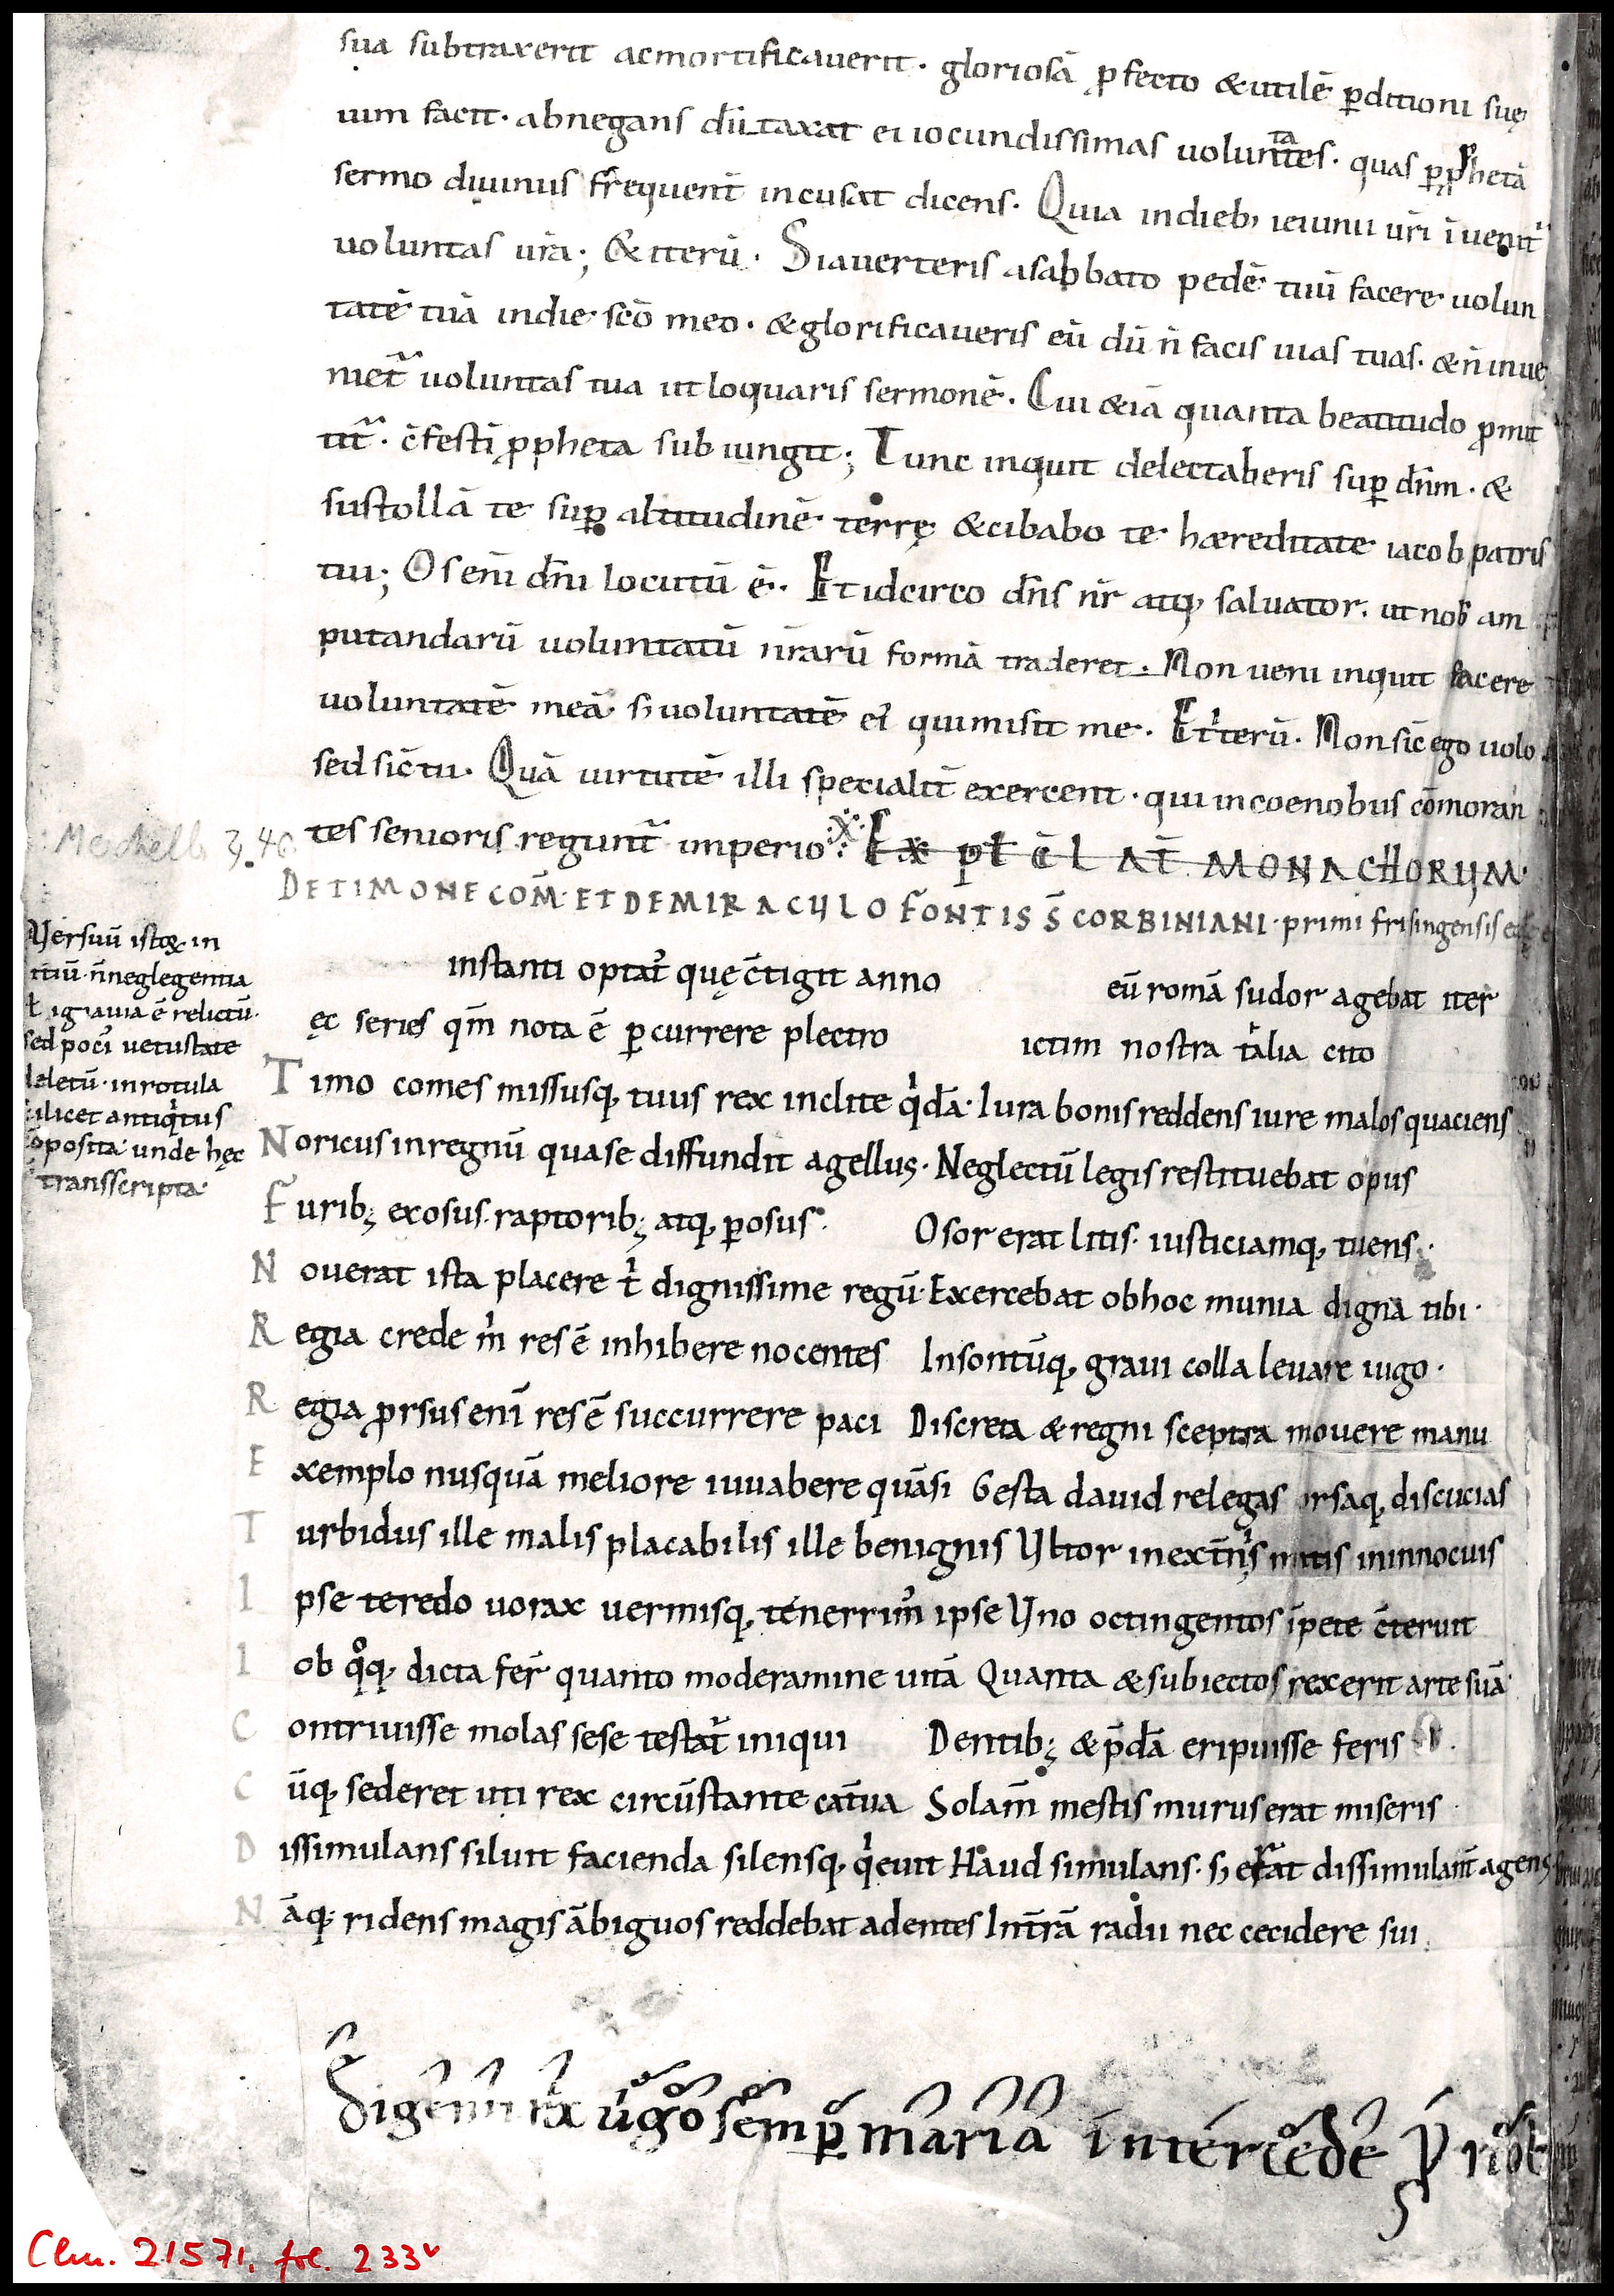 sua subtraxerit acmortificauerit· gloriosā ꝓfecto &utilē ꝑditioni suę
uim facit· abnegans dūtaxat ei iocundissimas uoluntates· quas ꝑꝓphetā
sermo diuinus frequent̄ incusat dicens· Quia indieb; ieiunii ur̄i īuenit᷑
uoluntas ur̄a; & iterū· Siauerteris asabbato pedē tuū facere uolun
tatē tuā indie sc̄o meo· &glorificaueris eū dū n̄ facis uias tuas· & n̄ inue
niet᷑ uoluntas tua ut loquaris sermonē· Cui &iā quanta beatitudo ꝓmit
tit᷑· c̄festī ꝓpheta subiungit; Tunc inquit delectaberis suꝑ dn̄m· &
sustollā te suꝑ altitudinē terrę &cibabo te haereditate iacob patris
tui; Os enī dn̄i locutū ē· Et idcirco dn̄s nr̄ atq; saluator· ut nob̄ am
putandarū uoluntatū nr̄arū formā traderet· Non ueni inquit facere
uoluntatē meā· s; uoluntatē ei᷒ quimisit me· Et iterū· Non sic̄ ego uolo
sed sic̄ tu· Quā uirtutē illi specialit̄ exercent· qui incoenobiis cōmoran
tes senioris regunt᷑ imperio· Ex
MONACHORUM
DETIMONE COM̄· ET DEMIRACULO FONTIS S̄ CORBINIANI· primi frisingensis
Uersuū istoꝝ in
itiū· n̄neglegentia
ł ignauia ē relictū·
sed poci᷒ uetustate
deletū· inrotula
scilicet antiqͥtus
cōposita· unde hęc
transscripta·
instanti optat᷑ quę c̄tigit anno eū romā sudor agebat iter
ęc series qm̄ nota ē ꝑcurrere plectro ictim nostra talia cito
Timo comes missusq; tuus rex inclite qͥdā· Iura bonis reddens iure malos quaciens
Noricus inregnū quase diffundit agellus· Neglectū legis restituebat opus
Furib; exosus raptorib; atq; ꝑosus· Osor erat litis· iusticiamq; tuens·
Nouerat ista placere tͥ dignissime regū· Exercebat obhoc munia digna tibi·
Regia crede mͥ res ē inhibere nocentes Insontūq; graui colla leuare iugo·
Regia ꝓrsus enī res ē succurrere paci Discreta & regni sceptra mouere manu
Exemplo nusquā meliore iuuabere quāsi Gesta dauid relegas orsaq; discucias
Turbidus ille malis placabilis ille benignis Ultor inext̄nͥs mitis ininnocuis
Ipse teredo uorax uermisq; tenerrim᷒ ipse Uno octingentos īpete c̄teruit
Iob qͦq; dicta fer̄ quanto moderamine uitā Quanta & subiectos rexerit arte suā
Contriuisse molas sese testat᷑ iniqui Dentib; & p̄dā eripuisse feris
Cūq; sederet uti rex circūstante cat̄ua Solam̄ mestis murus erat miseris
Dissimulans siluit facienda silensq; qͥeuit Haud simulans· s; erat dissimulant̄ agens
Nāq; ridens magis ābiguos reddebat adentes Int̄rā radii nec cecidere sui
Digenitrix uirgo semꝑ maria intercede ꝓ nob
Clm. 21571, fol. 233v